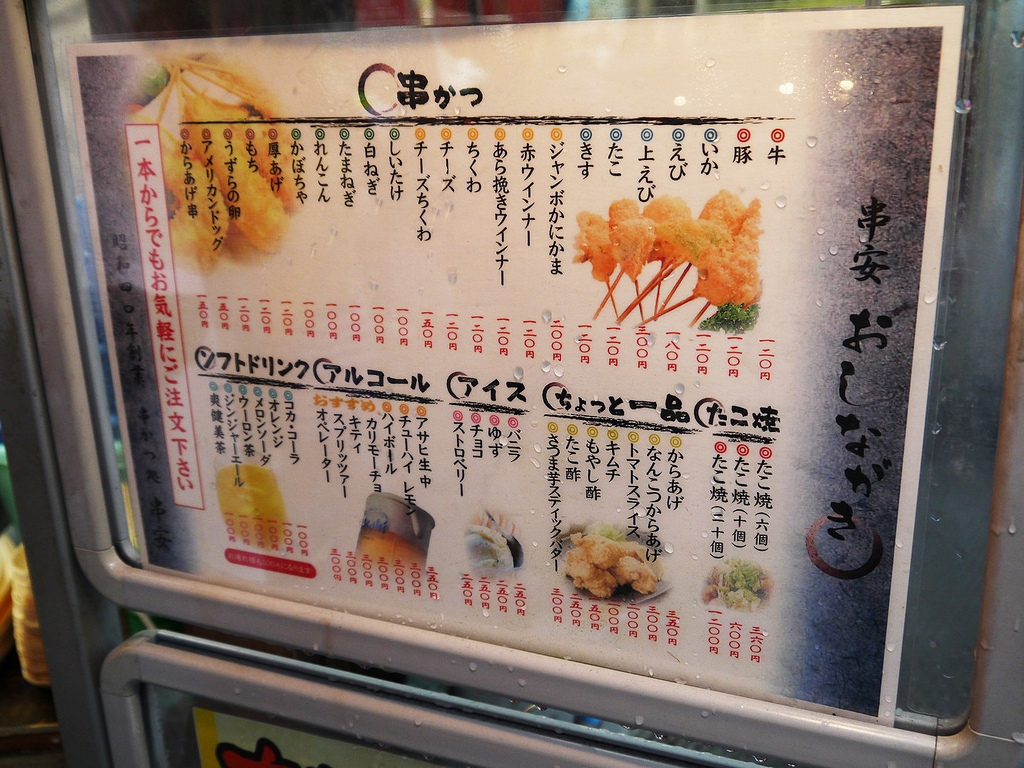 串安 おしながき
串かつ
牛 一二〇円
豚 一二〇円
いか 一二〇円
えび 一八〇円
上えび 三〇〇円
たこ 一二〇円
きす 一二〇円
ジャンボかにかま 二〇〇円
赤ウインナー 一二〇円
あら挽きウインナー 一二〇円
ちくわ 一二〇円
チーズ 一二〇円
チーズちくわ 一五〇円
しいたけ 一〇〇円
白ねぎ 一〇〇円
たまねぎ 一〇〇円
れんこん 一〇〇円
かぼちゃ 一〇〇円
厚あげ 一二〇円
もち 一二〇円
うずらの卵 一二〇円
アメリカンドッグ 一五〇円
からあげ串 一五〇円
たこ焼
たこ焼(六個) 三六〇円
たこ焼(十個) 六〇〇円
たこ焼(二十個) 一二〇〇円
ちょっと一品
からあげ 三五〇円
なんこつからあげ 三〇〇円
トマトスライス
キムチ
もやし酢
たこ酢
さつま芋スティックバター 三〇〇円
アイス
バニラ 二五〇円
ゆず 二五〇円
チョコ 二五〇円
ストロベリー 二五〇円
アルコール
アサヒ生中 三五〇円
チューハイ レモン 三〇〇円
ハイボール 三〇〇円
おすすめ
カリモーチョ 三〇〇円
キティ 三〇〇円
スプリッツァー 三〇〇円
オペレーター 三〇〇円
ソフトドリンク
コカ・コーラ 一〇〇円
オレンジ 一〇〇円
メロンソーダ 一〇〇円
ウーロン茶 一〇〇円
ジンジャーエール 一〇〇円
爽健美茶 一〇〇円
一本からでもお気軽にご注文下さい
昭和四〇年創業 串かつ処 串安